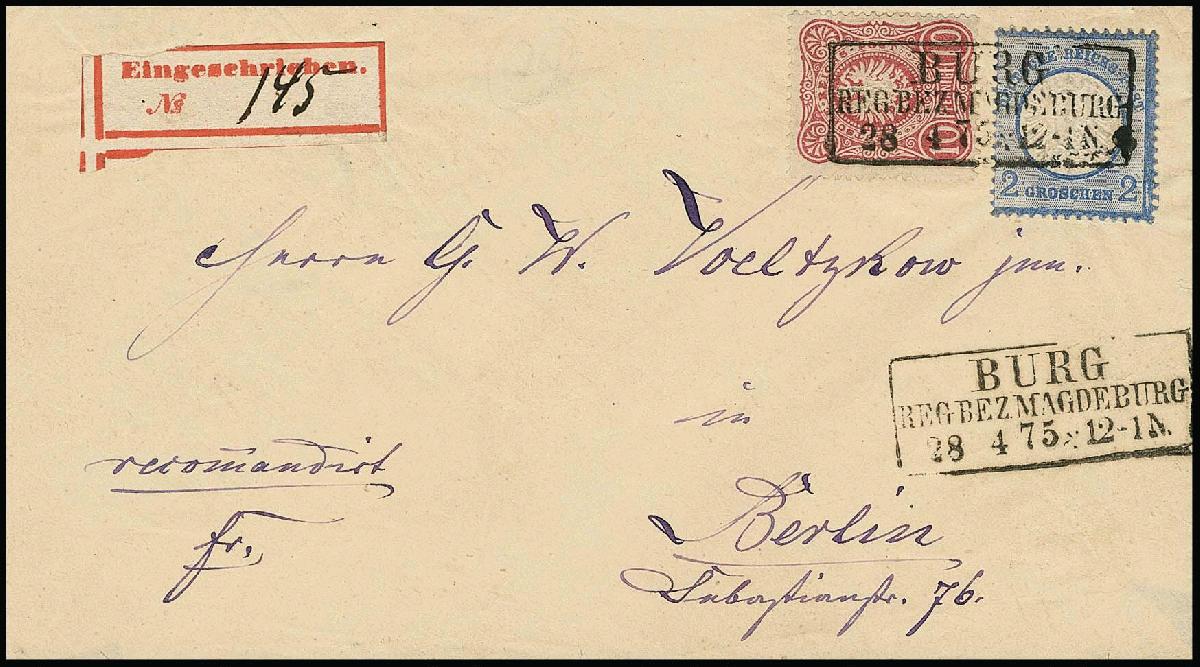 Eingeschrieben.
№ 145
10 10
BURG
REG.BEZ.MAGDEBURG
28 4 75 12-1N.
2 GROSCHEN 2
Herrn G. W. Voeltzkow jun.
BURG
REG.BEZ.MAGDEBURG
28 4 75 12-1N.
in
recom̄andirt
Berlin
fr.
Sebastianstr. 76.